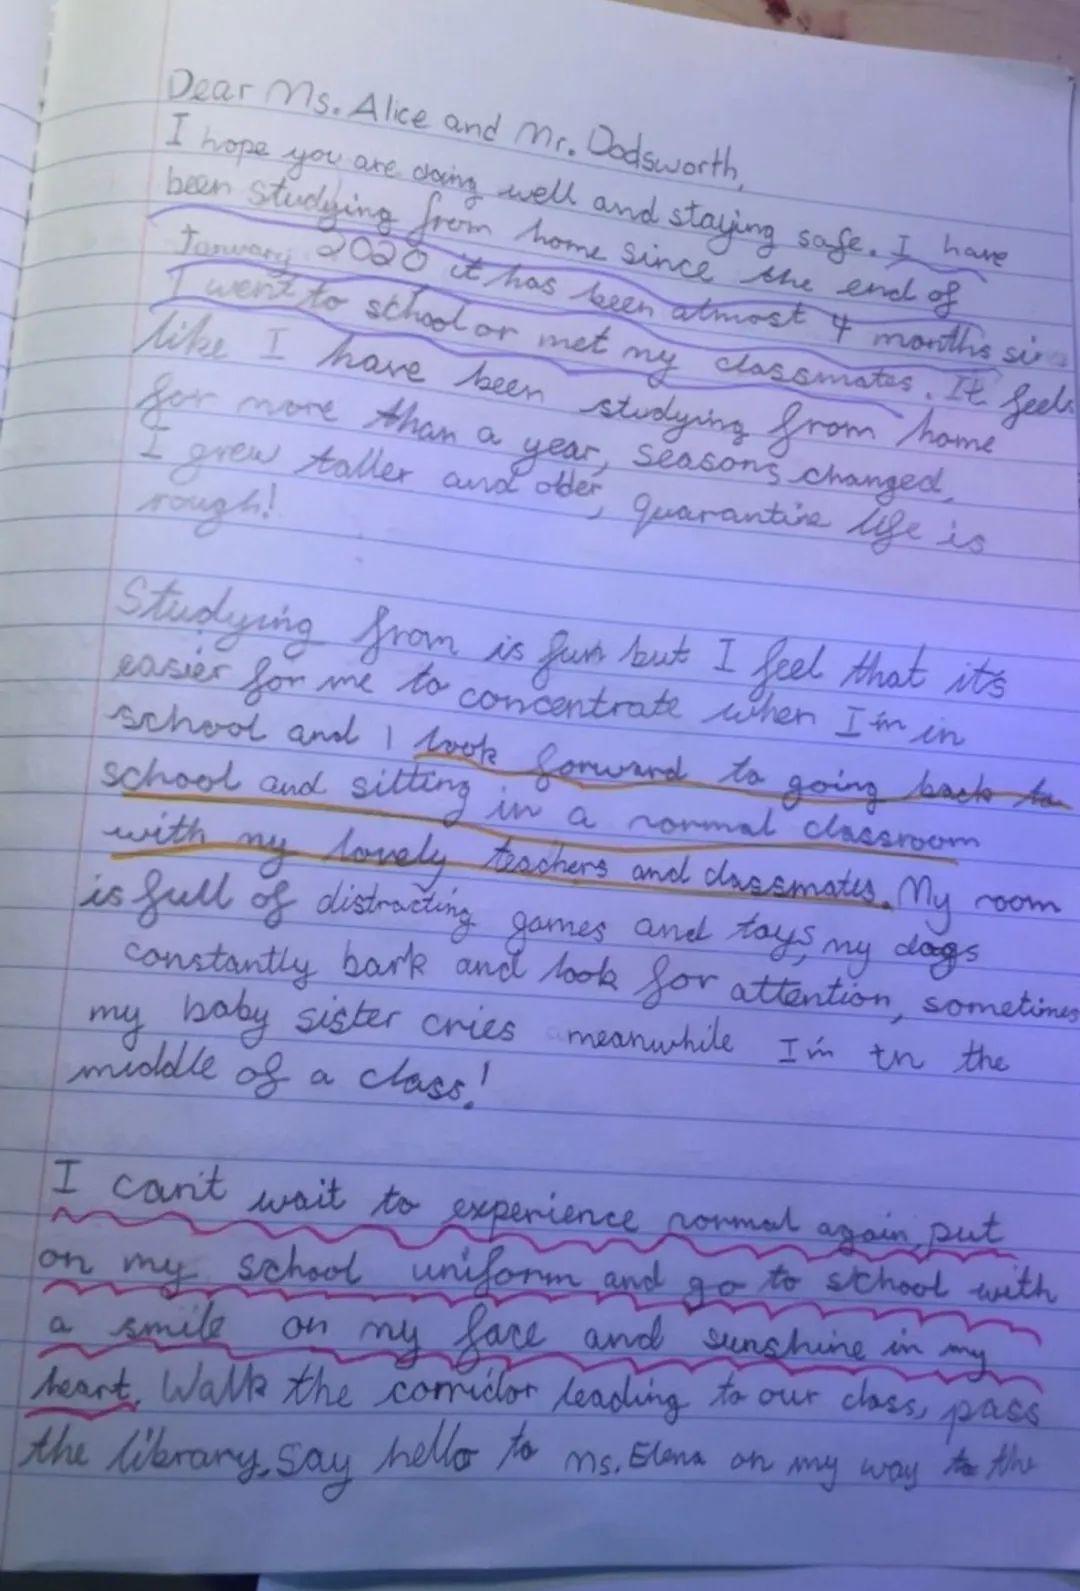 Dear Ms. Alice and Mr. Dodsworth,
I hope you are doing well and staying safe. I have
been studying from home since the end of
January 2020 it has been almost 4 months since
I went to school or met my classmates. It feels
like I have been studying from home
for more than a year, seasons changed,
I grew taller and older, quarantine life is
rough!
Studying from is fun but I feel that it's
easier for me to concentrate when I'm in
school and I look forward to going back to
school and sitting in a normal classroom
with my lovely teachers and classmates. My room
is full of distracting games and toys, my dogs
constantly bark and look for attention, sometimes
my baby sister cries meanwhile I'm in the
middle of a class!
I can't wait to experience normal again, put
on my school uniform and go to school with
a smile on my face and sunshine in my
heart. Walk the corridor leading to our class, pass
the library, say hello to Ms. Elena on my way to the